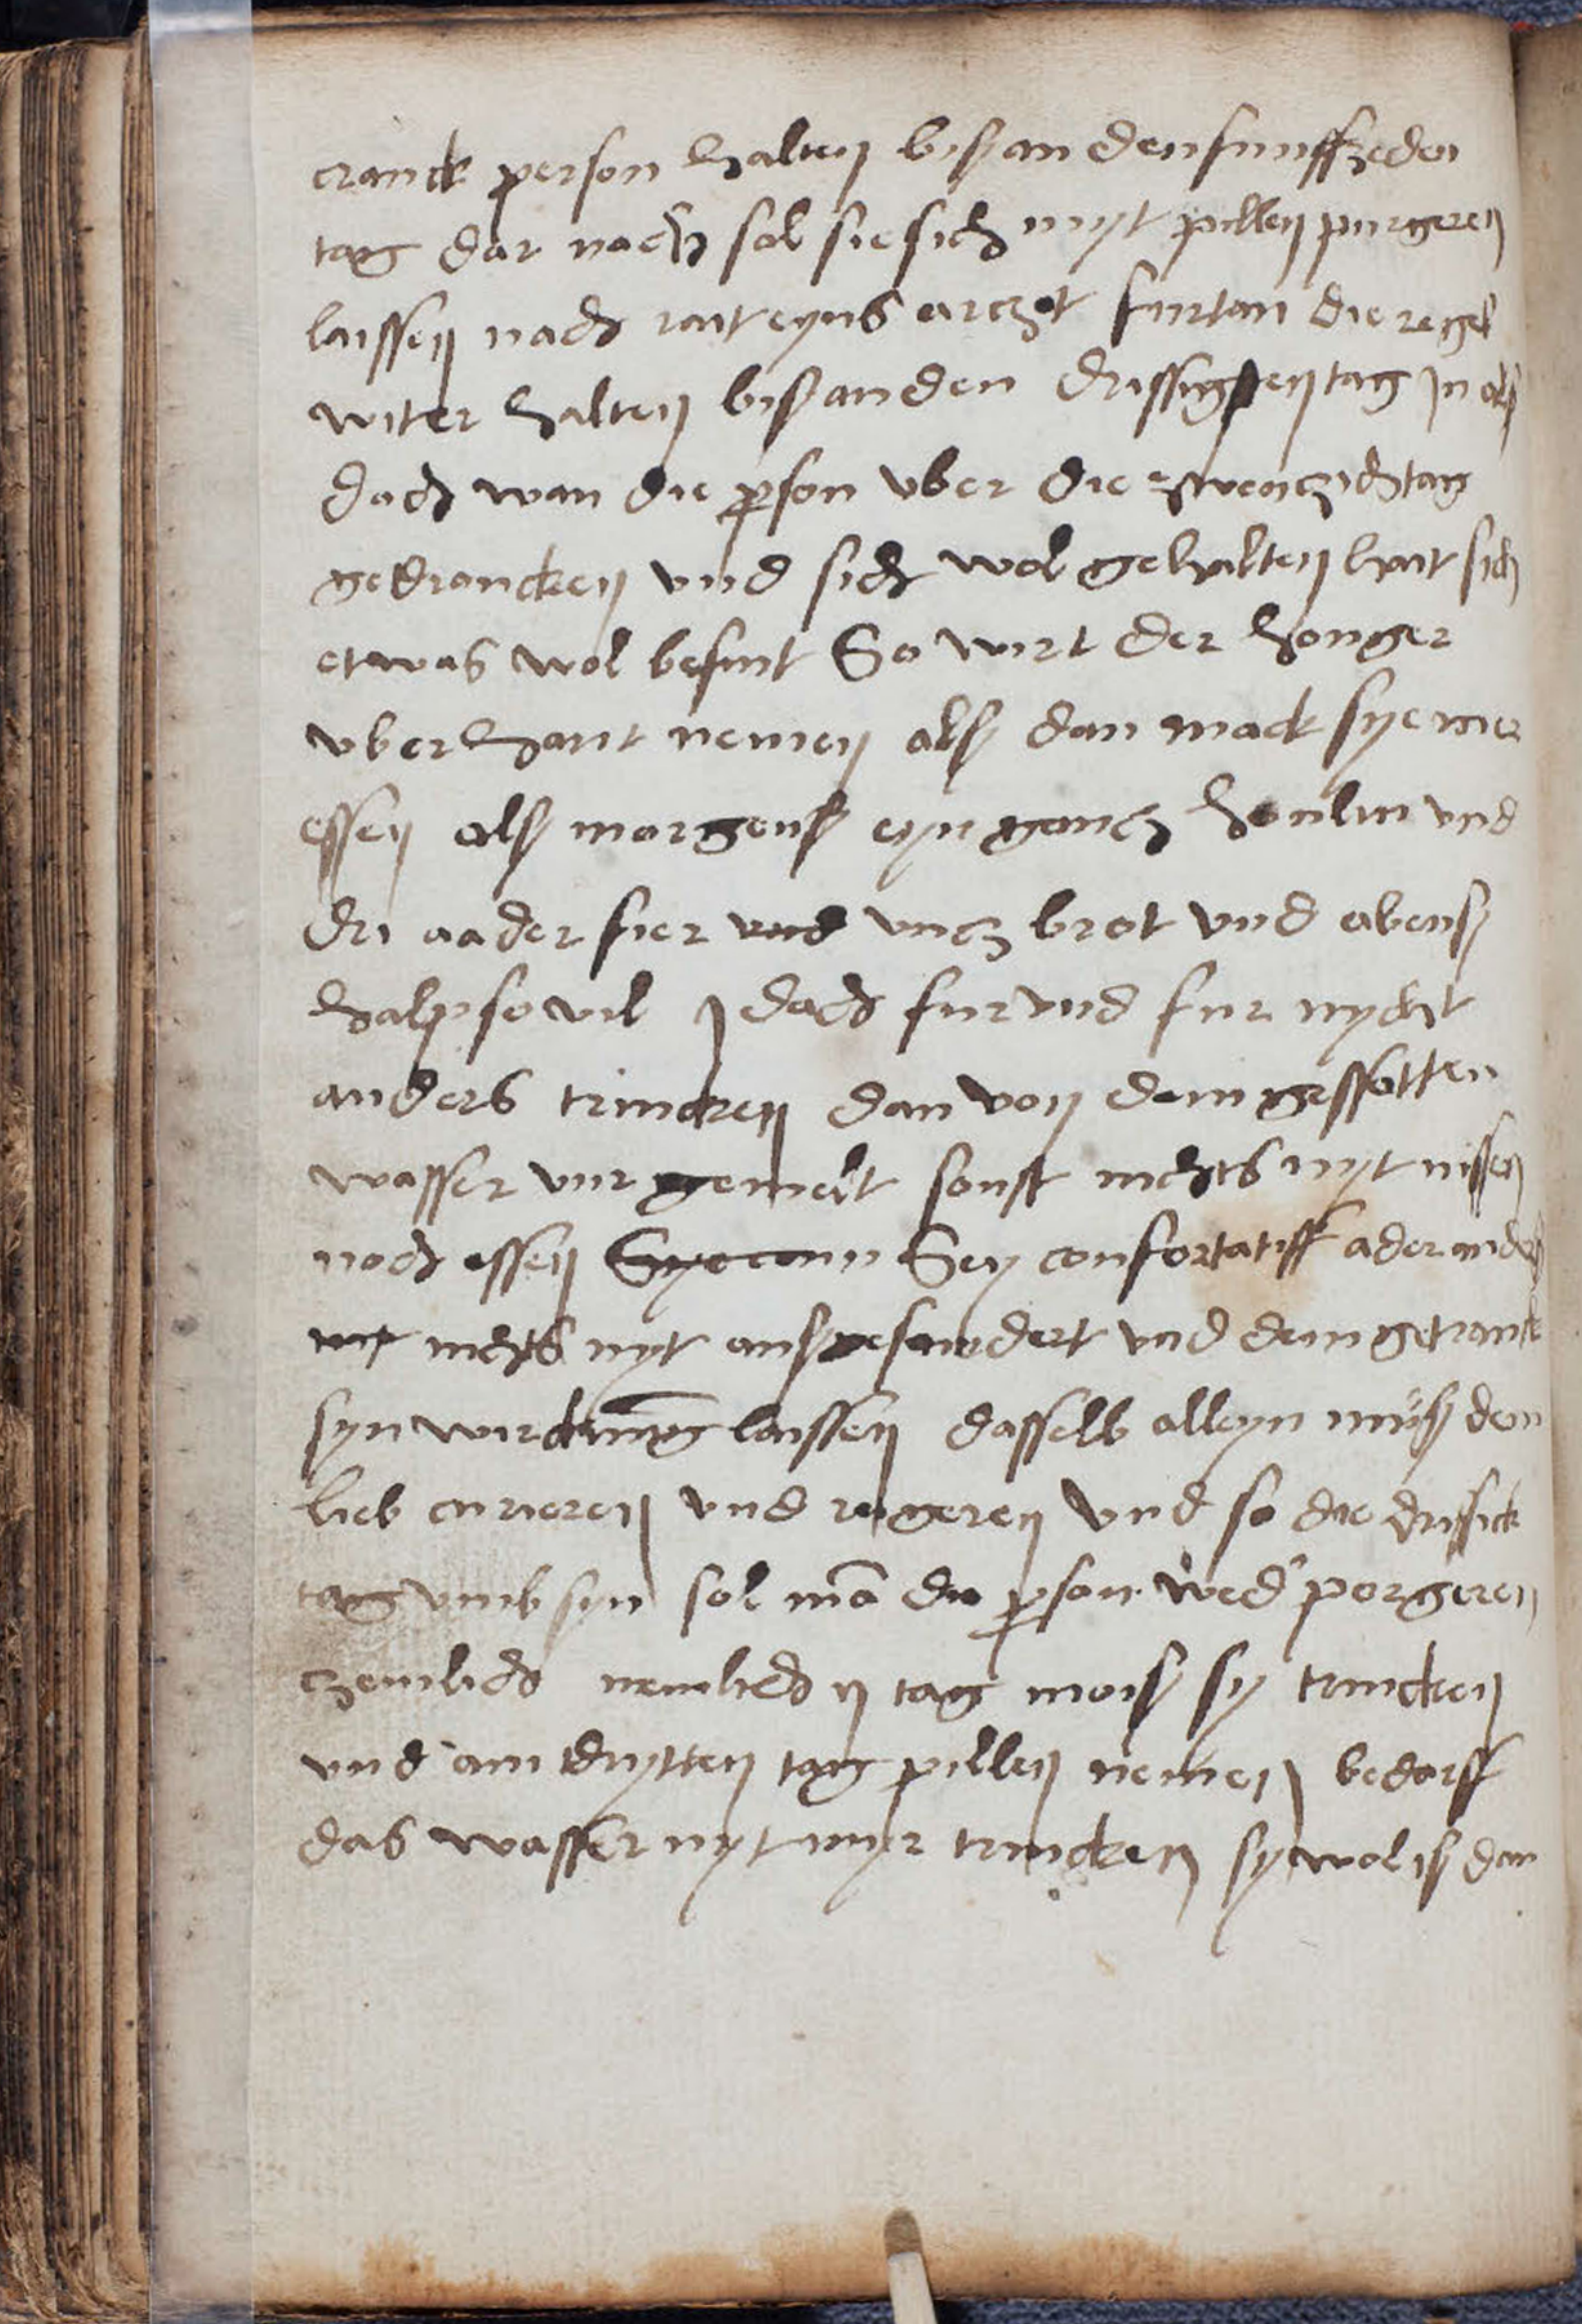 cranck person halten bis an den funffzeden
tag dar nach sol sie sich myt pillen purgeren
laissen nach rait eyns arczet furtan die regel
witer halten bis an den drissigsten tag in als
doch wan die person uber die zwenczich tag
gedroncken und sich wol gehalten hait sich
etwas wol befint So wirt der honger
uberhant nemen als dan mack sye mer
essen als morgens eyn gancz honlin und
dri aader fier und uncz brot und abens
halp so vil doch fur und fur nycht
anders trincken dan von dem gessotten
wasser vur gemelt sonst nichts nyt nissen
noch essen Sy confortatiff ader anders
nichts nyt ausgesundert und dem getranck
syn wirckung laissen dasselb alleyn müs den
lieb curieren und regeren und so die drissick
tag umb syn sol mā die pson wed' porgeren
czemlich nemlich ij tag mois sy trincken
und am drytten tag pillen nemen bedarff
das wasser nyt myr trincken sy wol is dan